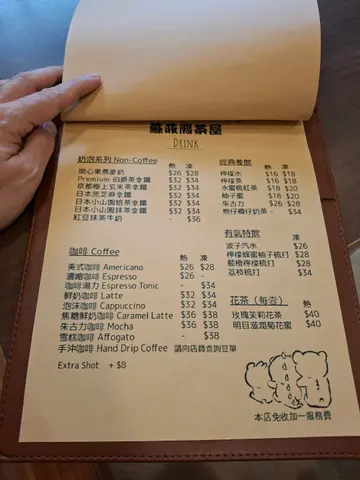 蘇菲燜茶屋
DRINK
奶泡系列 Non-Coffee 熱 凍
開心果燕麥奶 $26 $28
Premium 伯爵茶拿鐵 $32 $34
京都極上玄米茶拿鐵 $32 $34
日本黑芝麻拿鐵 $32 $34
日本小山園焙茶拿鐵 $32 $34
日本小山園抹茶拿鐵 $32 $34
紅豆抹茶牛奶 - $36
咖啡 Coffee 熱 凍
美式咖啡 Americano $26 $28
濃縮咖啡 Espresso $26 -
咖啡湯力 Espresso Tonic - $34
鮮奶咖啡 Latte $32 $34
泡沫咖啡 Cappuccino $32 $34
焦糖鮮奶咖啡 Caramel Latte $36 $38
朱古力咖啡 Mocha $36 $38
雪糕咖啡 Affogato - $38
手沖咖啡 Hand Drip Coffee 請向店員查詢豆單
Extra Shot + $8
經典餐飲 熱 凍
檸檬水 $16 $18
檸檬茶 $16 $18
水蜜桃紅茶 $18 $20
柚子蜜 $18 $20
朱古力 $26 $28
熊仔樽仔奶茶 - $34
有氣特飲 凍
波子汽水 $26
檸檬蜂蜜柚子梳打 $28
藍柑檸檬梳打 $28
荔枝梳打 $34
花茶（每壺） 熱
玫瑰茉莉花茶 $40
明目滋潤菊花蜜 $40
本店免收加一服務費